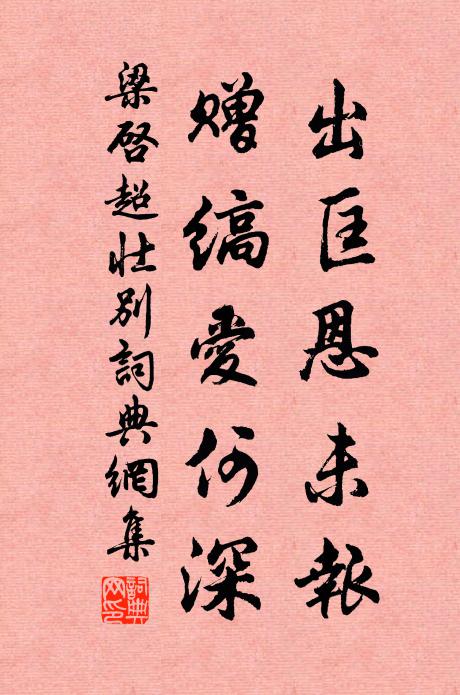 出匡恩未報
贈縞愛何深
梁啓超壯別詞典網集
詞典網印